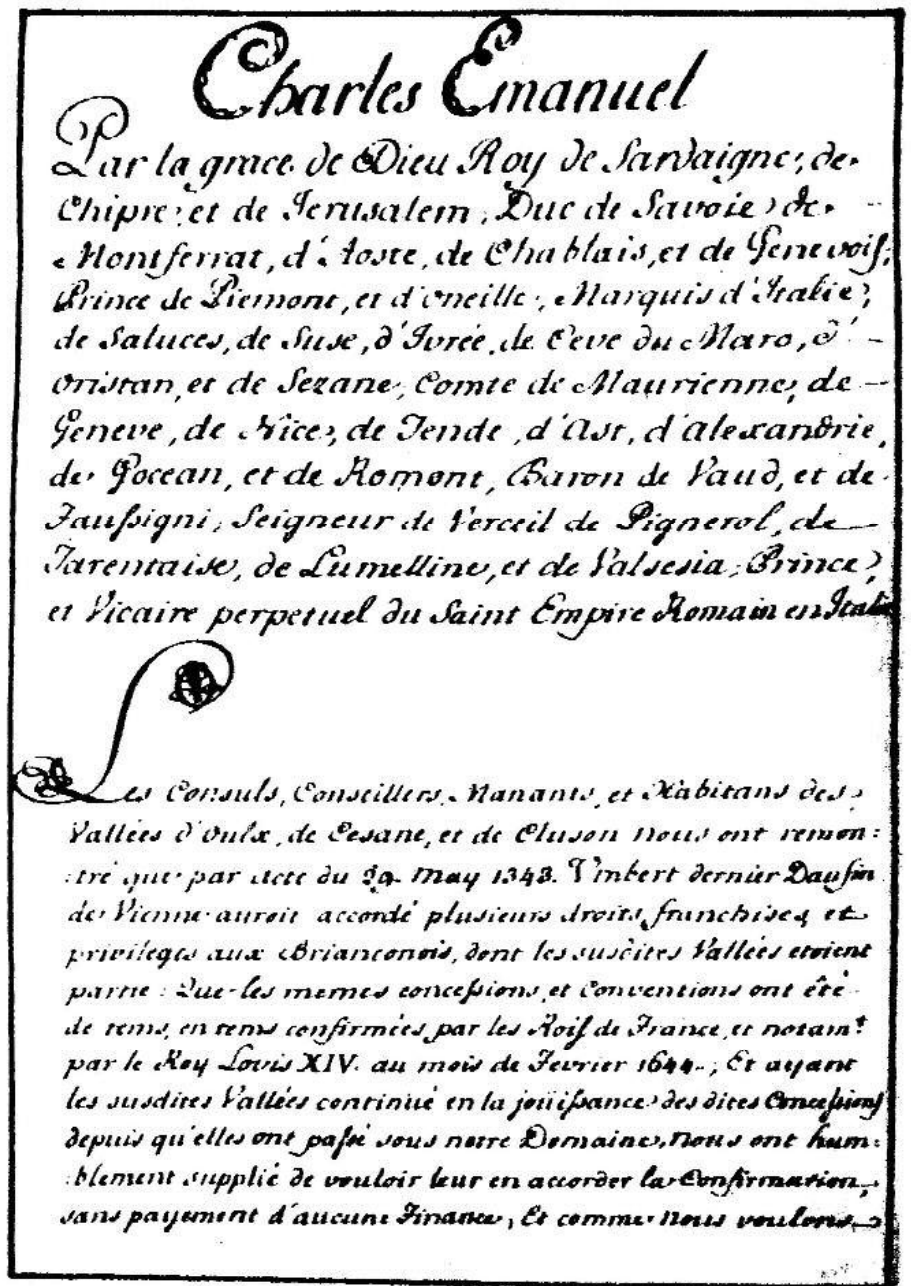 Charles Emanuel
Par la grace de Dieu Roy de Sardaigne, de
Chipre, et de Jerusalem, Duc de Savoie, de
Montferrat, d'Aoste, de Chablais, et de Genevois,
Prince de Piemont, et d'oneille, Marquis d'Italie,
de Saluces, de Suse, d'Ivrée, de Ceve du Maro, d'
oristan, et de Sezane, Comte de Maurienne, de
Geneve, de Nice, de Tende, d'Ast, d'alexandrie,
de Gocean, et de Romont, Baron de Vaud, et de
Faussigni, Seigneur de Verceil de Pignerol, de
Tarentaise, de Lumelline, et de Valsesia, Prince,
et Vicaire perpetuel du Saint Empire Romain en Italie
Les Consuls, Conseillers, Manants, et Habitans des
Vallées d'Oulx, de Cesane, et de Cluson nous ont remon:
:tré que par acte du May 1343. Vmbert dernier Daufin
de Vienne auroit accordé plusieurs droits, franchises, et
privileges aux Brianconois, dont les susdites Vallées etoient
partie: Que les memes concessions, et Conventions ont été
de tems, en tems confirmées, par les Rois de France, et notam.t
par le Roy Lovis XIV. au mois de Fevrier 1644.; Et ayant
les susdites Vallées continué en la joüissance des dites Concessions
depuis qu'elles ont passé sous notre Domaine, nous ont hum:
:blement supplié de vouloir leur en accorder la Confirmation,
sans payement d'aucune Finance, Et comme Nous voulons